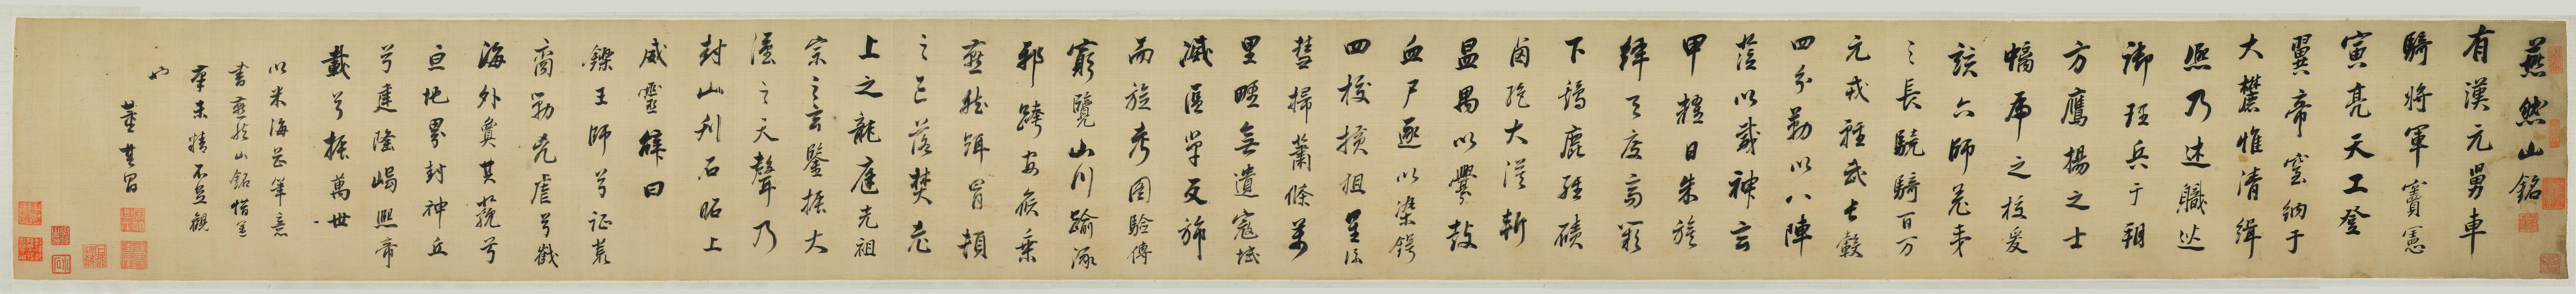 燕然山銘
有漢元舅車
騎將軍竇憲
寅亮天工登
翼帝室納于
大麓惟清緝
熙乃述職巡
御理兵于朔
方鷹揚之士
螭虎之校爰
該六師
之長驍騎百万
元戎輕武長轂
四分勒以八陣
蒞以威神玄
甲耀日朱旗
絳天凌高
下鷄鹿經磧
鹵絕大漠斬
溫禺以釁鼓
血尸逐以染鍔
四校橫徂星流
彗掃蕭條萬
里野無遺寇域
滅區單反旆
而旋考圖驗傳
窮覽山川踰涿
邪跨安侯乘
燕然躡冒頓
之區落焚老
上之龍庭光祖
宗之玄靈振大
漢之天聲乃
封山刊石昭上
威靈辭曰
鑠王師兮征荒
裔勦兇虐兮截
海外敻其邈兮
亘地界封神丘
兮建隆嵑熙帝
載兮振萬世
以米海岳筆意
書燕然山銘惜
筆未精不足觀
也
董其昌